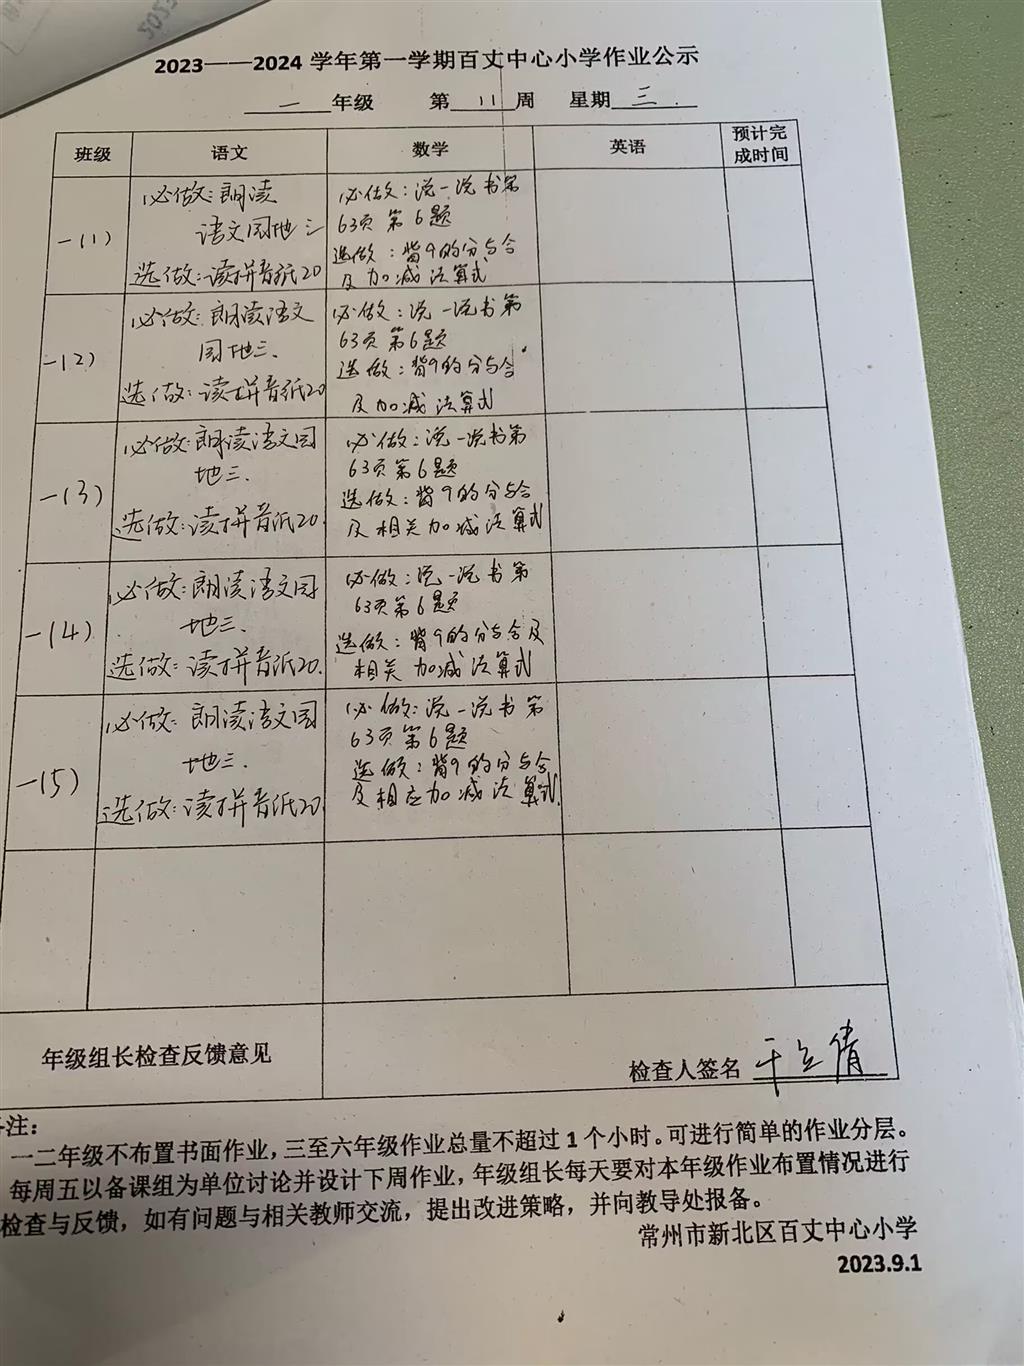 2023——2024 学年第一学期百丈中心小学作业公示
一 年级 第 11 周 星期 三
班级 语文 数学 英语 预计完
成时间
一(1)
必做：朗读
语文园地三
选做：读拼音纸20
必做：说一说书第
63页第6题
选做：背9的分与合
及加减法算式
一(2)
必做：朗读语文
园地三.
选做：读拼音纸20
必做：说一说书第
63页第6题
选做：背9的分与合
及加减法算式
一(3)
必做：朗读语文园
地三.
选做：读拼音纸20.
必做：说一说书第
63页第6题
选做：背9的分与合
及相关加减法算式
一(4)
必做：朗读语文园
地三.
选做：读拼音纸20.
必做：说一说书第
63页第6题
选做：背9的分与合及
相关加减法算式
一(5)
必做：朗读语文园
地三.
选做：读拼音纸20.
必做：说一说书第
63页第6题
选做：背9的分与合
及相应加减法算式.
年级组长检查反馈意见
检查人签名
备注：
一二年级不布置书面作业，三至六年级作业总量不超过 1 个小时。可进行简单的作业分层。
每周五以备课组为单位讨论并设计下周作业，年级组长每天要对本年级作业布置情况进行
检查与反馈，如有问题与相关教师交流，提出改进策略，并向教导处报备。
常州市新北区百丈中心小学
2023.9.1